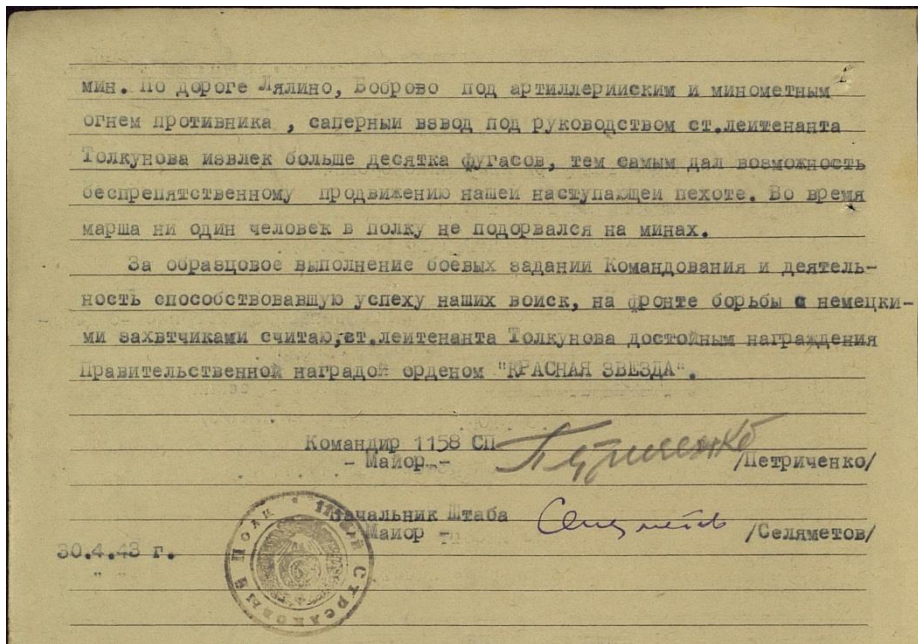 мин. По дороге Лялино, Боброво под артиллерииским и минометным
огнем противника , саперныи взвод под руководством ст.леитенанта
Толкунова извлек больше десятка фугасов, тем самым дал возможность
беспрепятственному продвижению нашеи наступающеи пехоте. Во время
марша ни один человек в полку не подорвался на минах.
За образцовое выполнение боевых задании Командования и деятель-
ность способствовавшую успеху наших воиск, на фронте борьбы с немецки-
ми захвтчиками считаю,ст.леитенанта Толкунова достойным награждения
Правительственной наградой орденом "КРАСНАЯ ЗВЕЗДА".
Командир 1158 СП
- Майор -- Петриченко /Петриченко/
Начальник Штаба
Майор - /Селяметов/
30.4.43 г.
1158й Стрелковый Полк